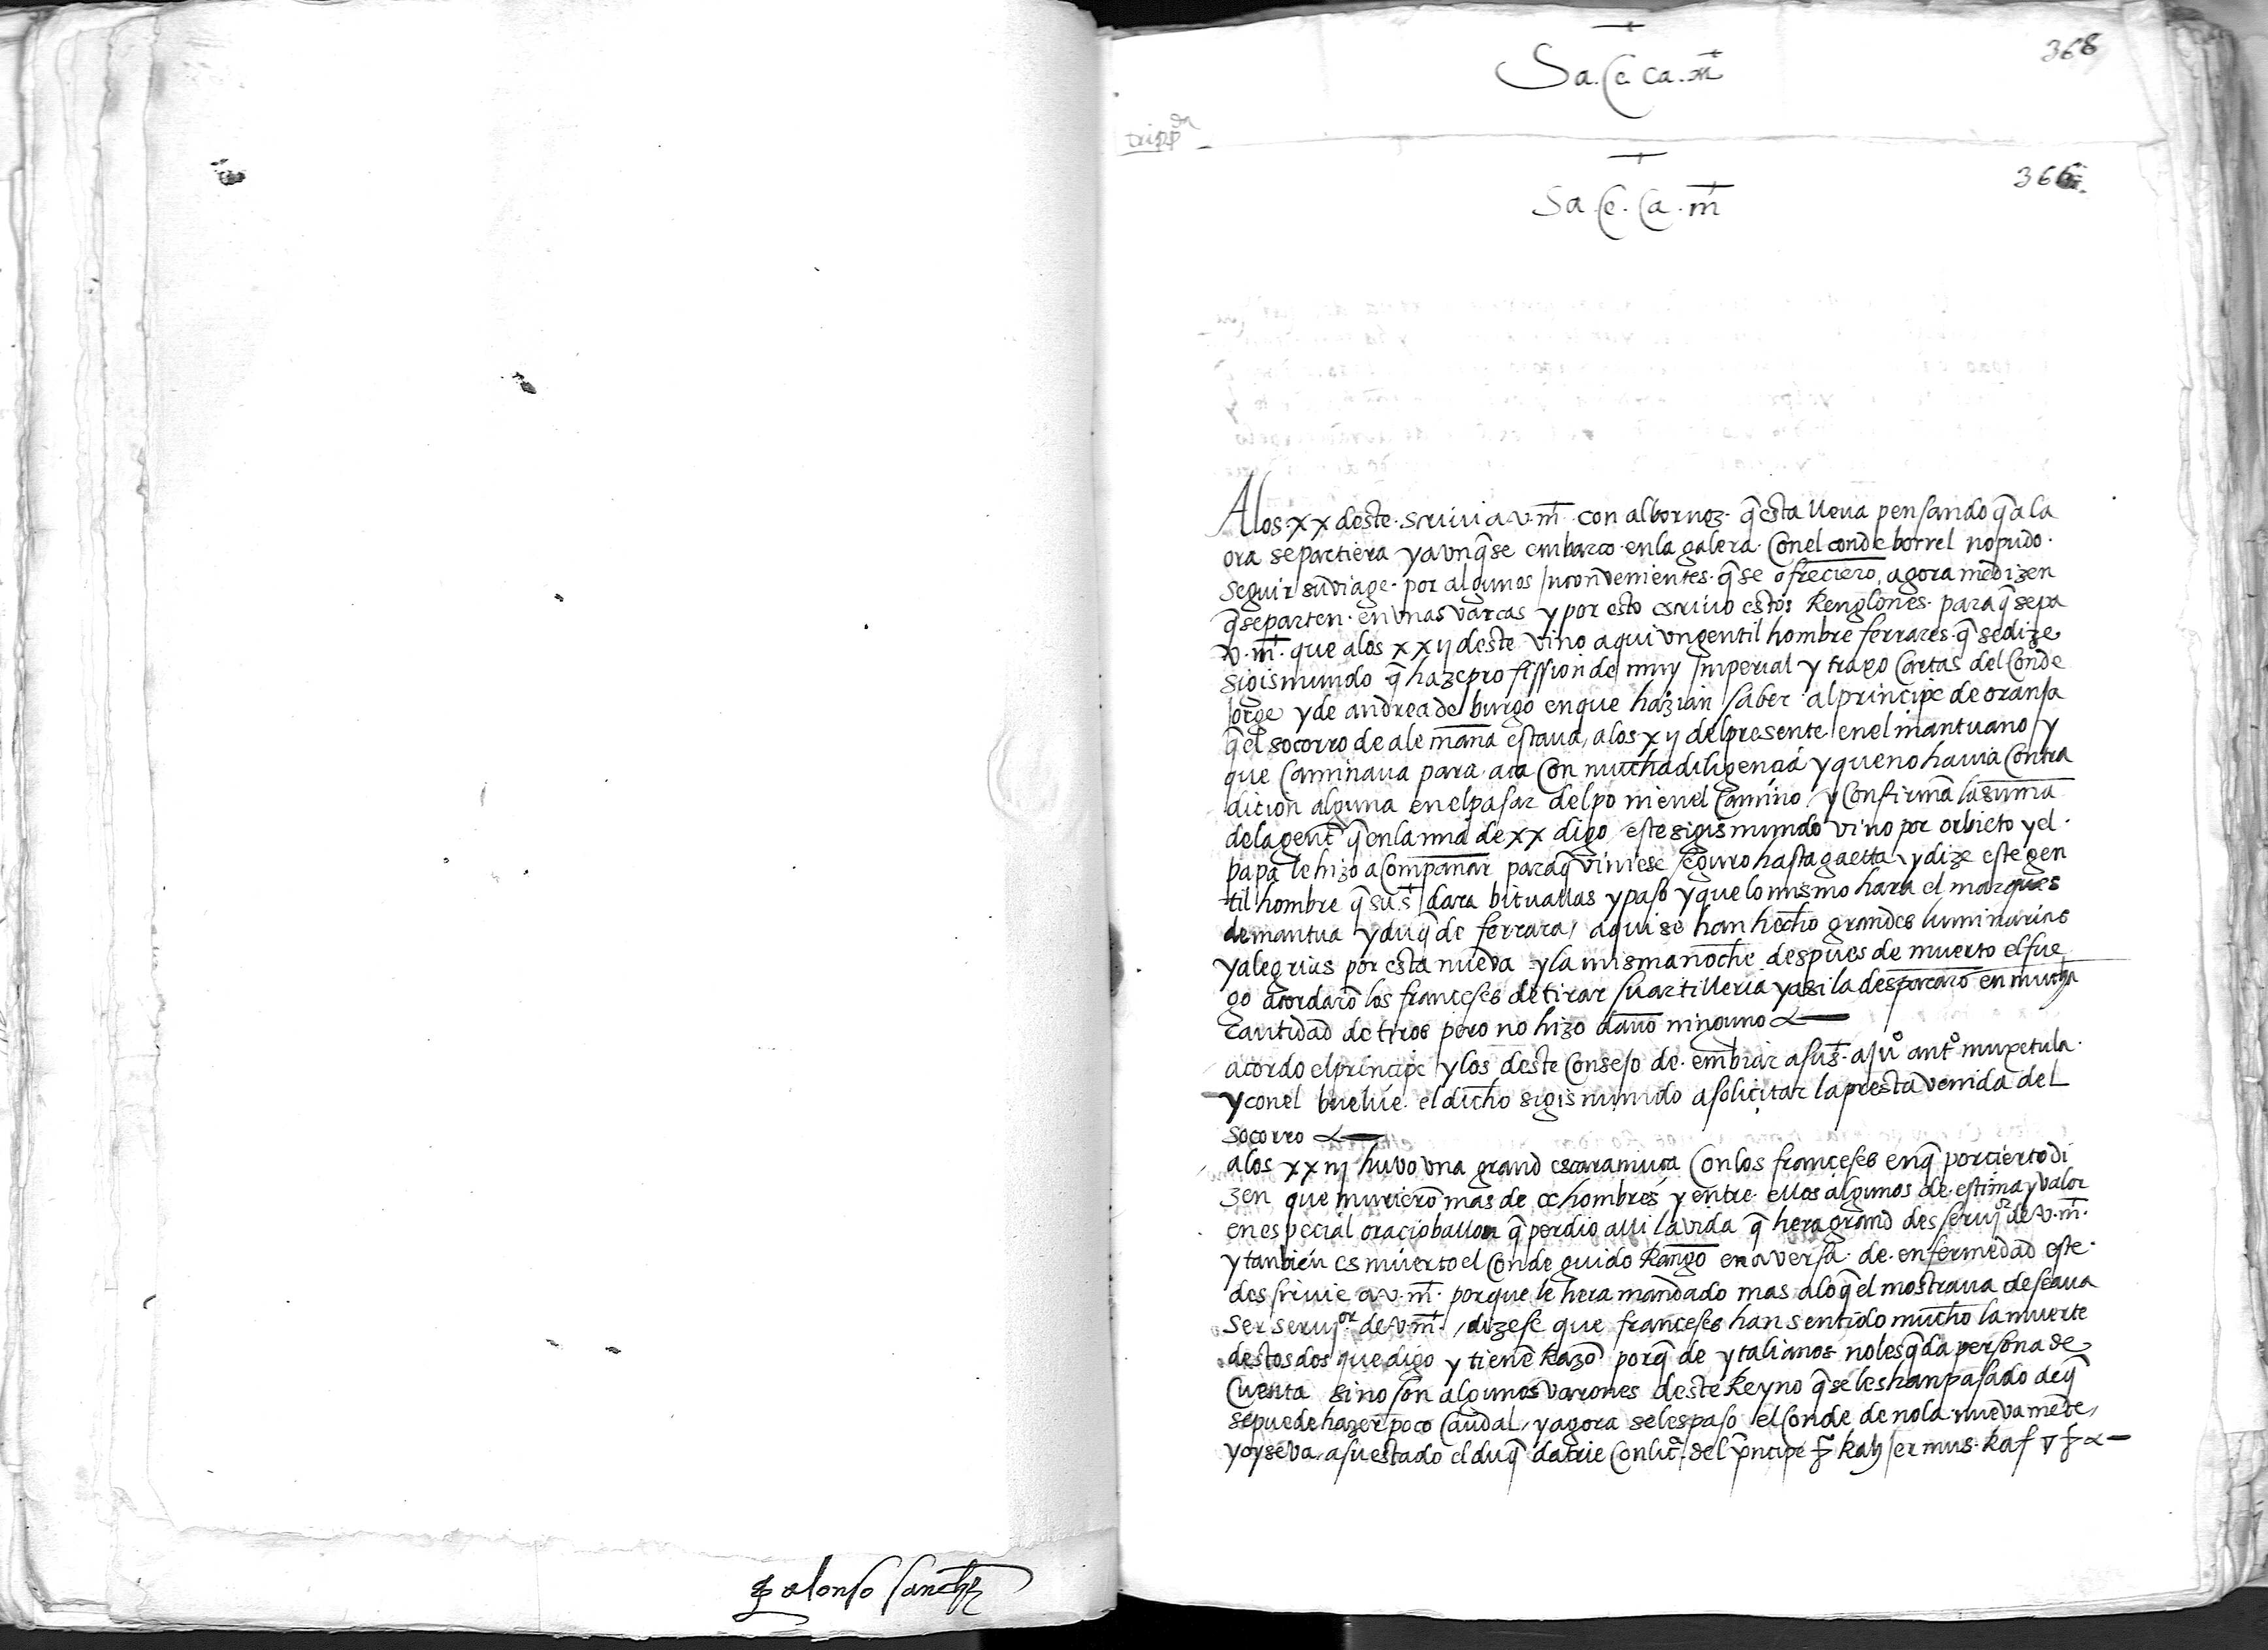 alonso sanchz
368
Sa. Ce. ca. mt
trippdn
366
Sa. Ce. Ca. mt
A los xx deste scriui a v. mt con albornoz q̃ esta lleua pensando q̃ a la
ora se partiera y avnq̃ se embarco en la galera con el conde borrel no pudo
seguir su viage por algunos Inconvenientes q̃ se ofreciero, agora me dizen
q̃ se parten en vnas varcas y por esto escriuo estos Renglones para q̃ sepa
v. mt que a los xxij deste vino aqui vn gentil hombre ferrares q̃ se dize
sigismundo q̃ haze profission de muy Imperial y traxo cartas del Conde
Jorge y de andrea de burgo en que hazian saber al principe de oranja
q̃ el socorro de alemaña estaua, a los xij del presente en el mantuano y
que Caminaua para aca con mucha diligencia y que no hauia Contra
dicion alguna en el pasar del po ni en el camino y confirmã la suma
de la gente q̃ en la mia de xx digo este sigismundo vino por orbieto y el
papa le hizo acompañar para q̃ viniese seguro hasta gaetta y dize este gen
til hombre q̃ su st dara bituallas y paso y que lo mismo hara el marques
de mantua y duq̃ de ferrara, aqui se han hecho grandes luminarias
y alegrias por esta nueva y la misma noche despues de muerto el fue
go acordarõ los franceses de tirar su artilleria y asi la despararõ en mucha
cantidad de tiros pero no hizo daño ninguno
acordo el principe y los deste Consejo de embiar a su st a juº antº muxetula
y con el buelue el dicho sigismundo a solicitar la presta venida del
socorro
a los xxiij huvo vna grand escaramuça Con los franceses en q̃ por cierto di
zen que murierõ mas de cc hombres y entre ellos algunos de estima y valor
en especial oracio ballon q̃ perdio alli la vida q̃ hera grand desseruijor de v. mt
y tanbien es muerto el Conde guido Rangõ en aversa de enfermedad este
desseruie a v. mt porque le hera mandado mas a lo q̃ el mostraua deseaua
ser seruijor de v. mt, dizese que franceses han sentido mucho la muerte
destos dos que digo y tienẽ Razõ porq̃ de ytalianos no les q̃da persona de
Cuenta sino son algunos varones deste Reyno q̃ se les han pasado de q̃
se puede hazer poco Caudal, y agora se les paso el Conde de nola nuevamẽte,
y oy se va a su estado el duq̃ datrie con lic.ª del p̃ncipe